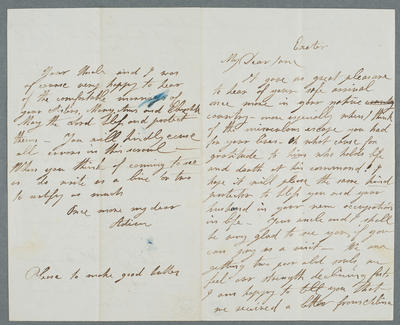 Exeter
My Dear Jane
It gave us great pleasure
to hear of your safe arrival
once more in your native
country – more especially when I think
of the miraculous escape you had
for your lives. Oh what cause for
gratitude to him who holds life
and death at his command. I
hope it will please the same kind
protector to bless you and your
husband in your new occupation
in life – Your uncle and I shall
be very glad to see you if you
can pay us a visit – We are
getting two poor old souls we
feel our strength declining fast.
I am happy to tell you that
we received a letter from
Your Uncle and I was
of course very happy to hear
of the comfortable of
your Sisters, Mary Ann and Elizabeth
May the Lord bless and protect
them – You will kindly excuse
all errors in this scrawl –
When you think of coming to see
us do write us a line or two
to certify as much
Once more my dear
Adieu
to make good